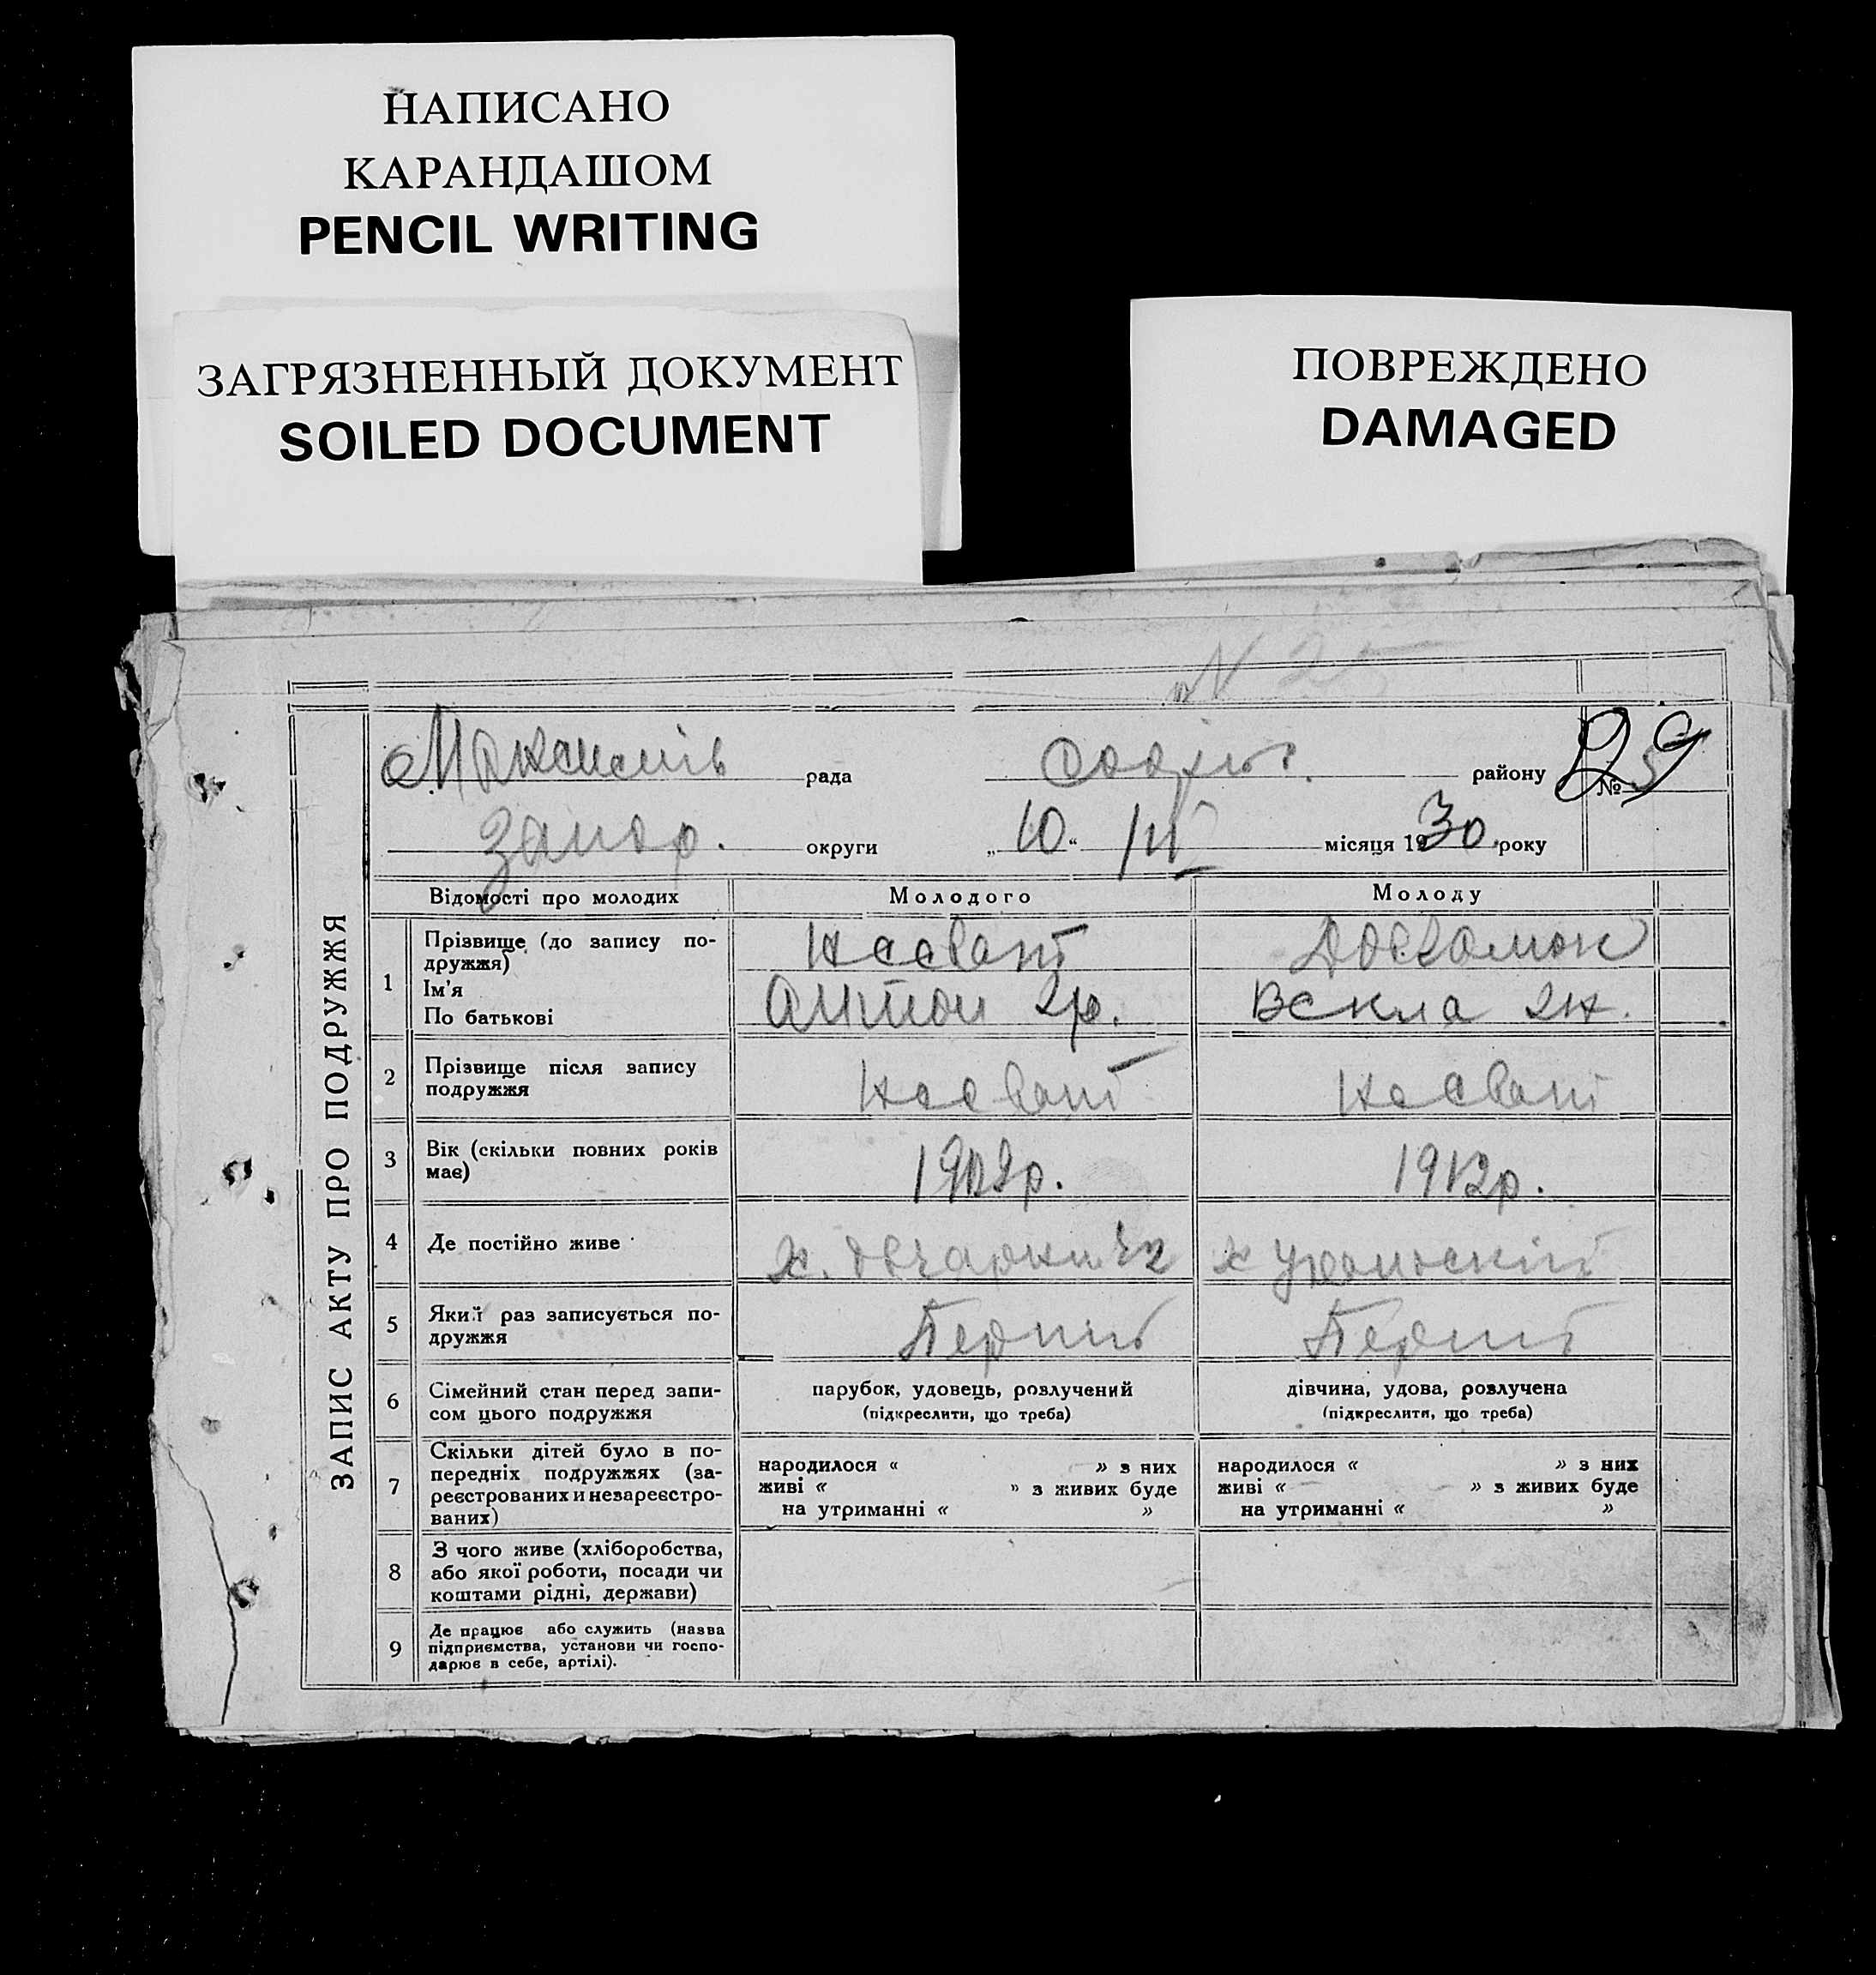 НАПИСАНО
КАРАНДАШОМ
PENCIL WRITING
ЗАГРЯЗНЕННЫЙ ДОКУМЕНТ
SOILED DOCUMENT
ПОВРЕЖДЕНО
DAMAGED
N 25
рада Софіїв. району № 29
Запор. округи „10“ III місяця 1930 року
ЗАПИС АКТУ ПРО ПОДРУЖЖЯ
Відомості про молодих Молодого Молоду
1 Прізвище (до запису по-
дружжя)
Несват
Ім'я
По батькові
Антон Гр. Векла
2 Прізвище після запису
подружжя
Несват Несват
3 Вік (скільки повних років
має)
1912р.
4 Де постійно живе
х. х
5 Який раз записується по-
дружжя
Перший Перший
6 Сімейний стан перед запи-
сом цього подружжя
парубок, удовець, розлучений
(підкреслити, що треба)
дівчина, удова, розлучена
(підкреслити, що треба)
7 Скільки дітей було в по-
передніх подружжях (за-
реєстрованих и незареєстро-
ваних)
народилося « » з них
живі « » з живих буде
на утриманні « »
народилося « » з них
живі « » з живих буде
на утриманні « »
8 З чого живе (хліборобства,
або якої роботи, посади чи
коштами рідні, держави)
9 Де працює або служить (назва
підприємства, установи чи госпо-
дарює в себе, артілі).